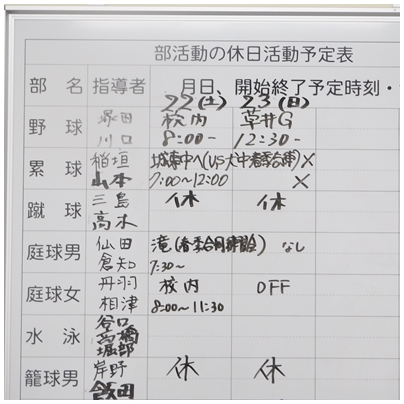 部活動の休日活動予定表
部 名 指導者 月日、開始終了予定時刻・
22(土) 23(日)
野 球 塚田 校内 草井G
川口 8:00~ 12:30~
累 球 稲垣 城東中へ(VS犬中 ×
山本 7:00~12:00 ×
蹴 球 三島 休 休
高木
庭球男 仙田 滝( なし
倉知 7:30~
庭球女 丹羽 校内 OFF
相津 8:00~11:30
水 泳 谷口
堀部
籠球男 岸野 休 休
飯田